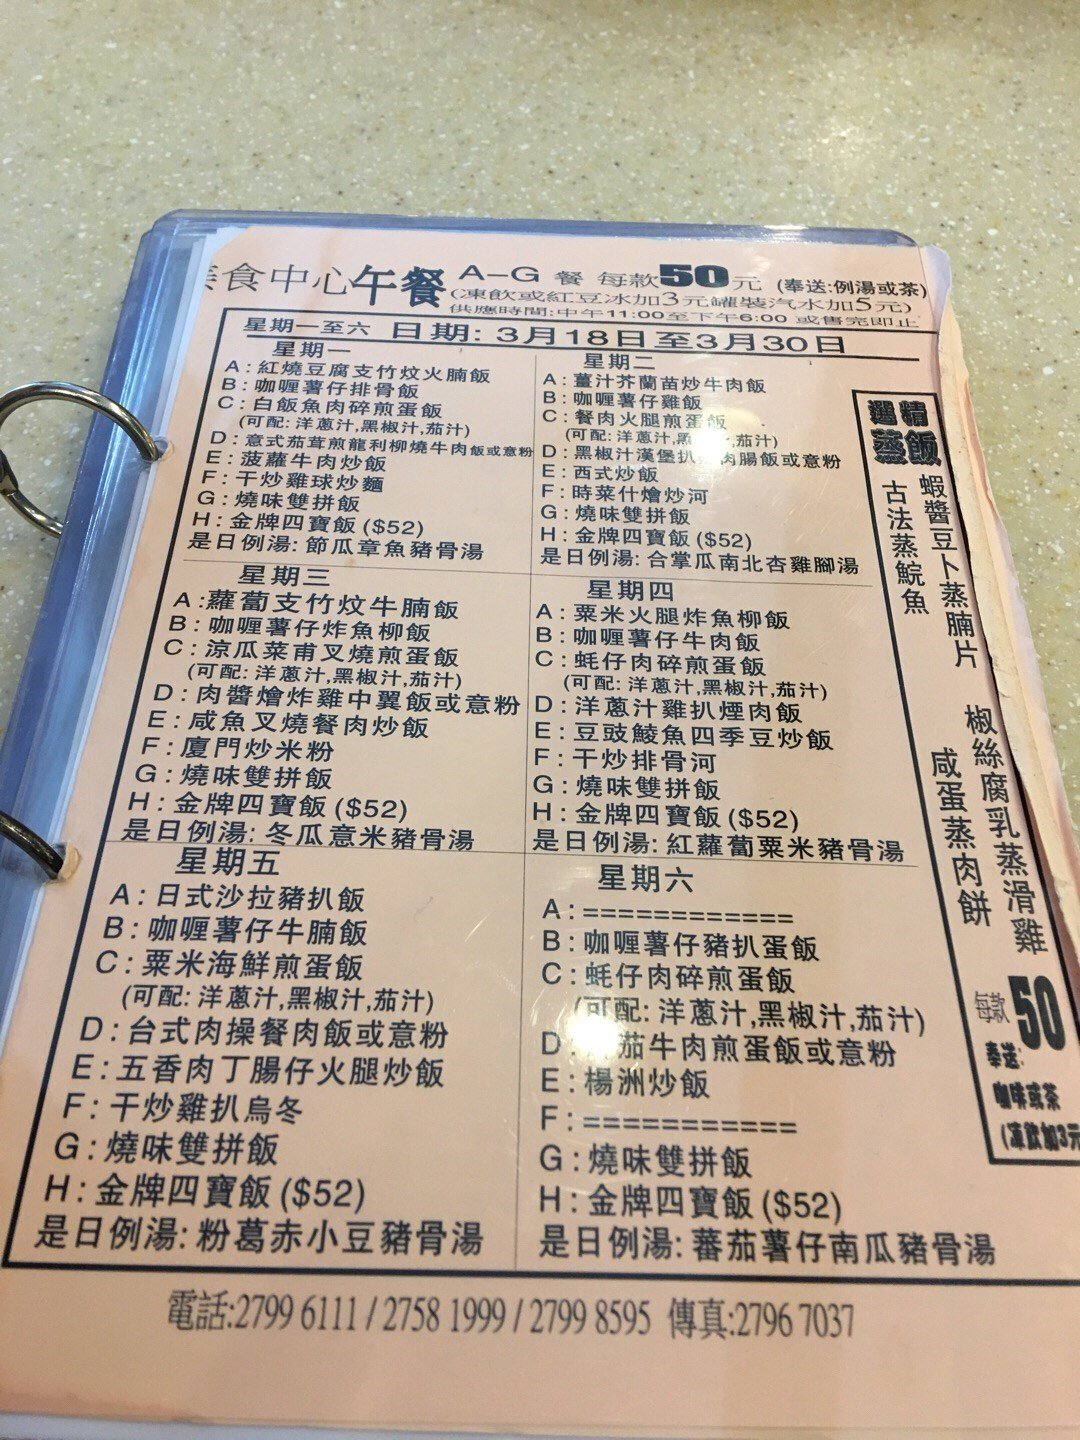 食中心午餐 A-G 餐 每款50元 (奉送:例湯或茶)
(凍飲或紅豆冰加3元罐裝汽水加5元)
供應時間:中午11:00至下午6:00 或售完即止
星期一至六 日期: 3月18日至3月30日
星期一
A:紅燒豆腐支竹炆火腩飯
B:咖喱薯仔排骨飯
C:白飯魚肉碎煎蛋飯
(可配:洋蔥汁,黑椒汁,茄汁)
D:意式茄茸煎龍利柳燒牛肉飯或意粉
E:菠蘿牛肉炒飯
F:干炒雞球炒麵
G:燒味雙拼飯
H:金牌四寶飯($52)
是日例湯:節瓜章魚豬骨湯
星期二
A:薑汁芥蘭苗炒牛肉飯
B:咖喱薯仔雞飯
C:餐肉火腿煎蛋飯
(可配:洋蔥汁,黑 茄汁)
D:黑椒汁漢堡扒 肉腸飯或意粉
E:西式炒飯
F:時菜什燴炒河
G:燒味雙拼飯
H:金牌四寶飯($52)
是日例湯:合掌瓜南北杏雞腳湯
星期三
A:蘿蔔支竹炆牛腩飯
B:咖喱薯仔炸魚柳飯
C:涼瓜菜甫叉燒煎蛋飯
(可配:洋蔥汁,黑椒汁,茄汁)
D:肉醬燴炸雞中翼飯或意粉
E:咸魚叉燒餐肉炒飯
F:廈門炒米粉
G:燒味雙拼飯
H:金牌四寶飯($52)
是日例湯:冬瓜意米豬骨湯
星期四
A:粟米火腿炸魚柳飯
B:咖喱薯仔牛肉飯
C:蚝仔肉碎煎蛋飯
(可配:洋蔥汁,黑椒汁,茄汁)
D:洋蔥汁雞扒煙肉飯
E:豆豉鯪魚四季豆炒飯
F:干炒排骨河
G:燒味雙拼飯
H:金牌四寶飯($52)
是日例湯:紅蘿蔔粟米豬骨湯
星期五
A:日式沙拉豬扒飯
B:咖喱薯仔牛腩飯
C:粟米海鮮煎蛋飯
(可配:洋蔥汁,黑椒汁,茄汁)
D:台式肉操餐肉飯或意粉
E:五香肉丁腸仔火腿炒飯
F:干炒雞扒烏冬
G:燒味雙拼飯
H:金牌四寶飯($52)
是日例湯:粉葛赤小豆豬骨湯
星期六
A:============
B:咖喱薯仔豬扒蛋飯
C:蚝仔肉碎煎蛋飯
(可配:洋蔥汁,黑椒汁,茄汁)
D: 茄牛肉煎蛋飯或意粉
E:楊洲炒飯
F:============
G:燒味雙拼飯
H:金牌四寶飯($52)
是日例湯:蕃茄薯仔南瓜豬骨湯
精選
蒸飯
蝦醬豆卜蒸腩片
古法蒸鯇魚
椒絲腐乳蒸滑雞
咸蛋蒸肉餅
每款50
奉送:
咖啡或茶
(凍飲加3元
電話:2799 6111 / 2758 1999 / 2799 8595 傳真:2796 7037